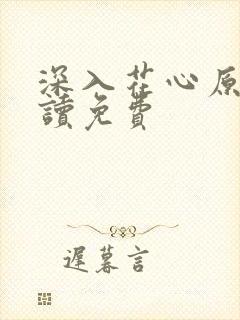 深入花心原
讀免費
遲暮言